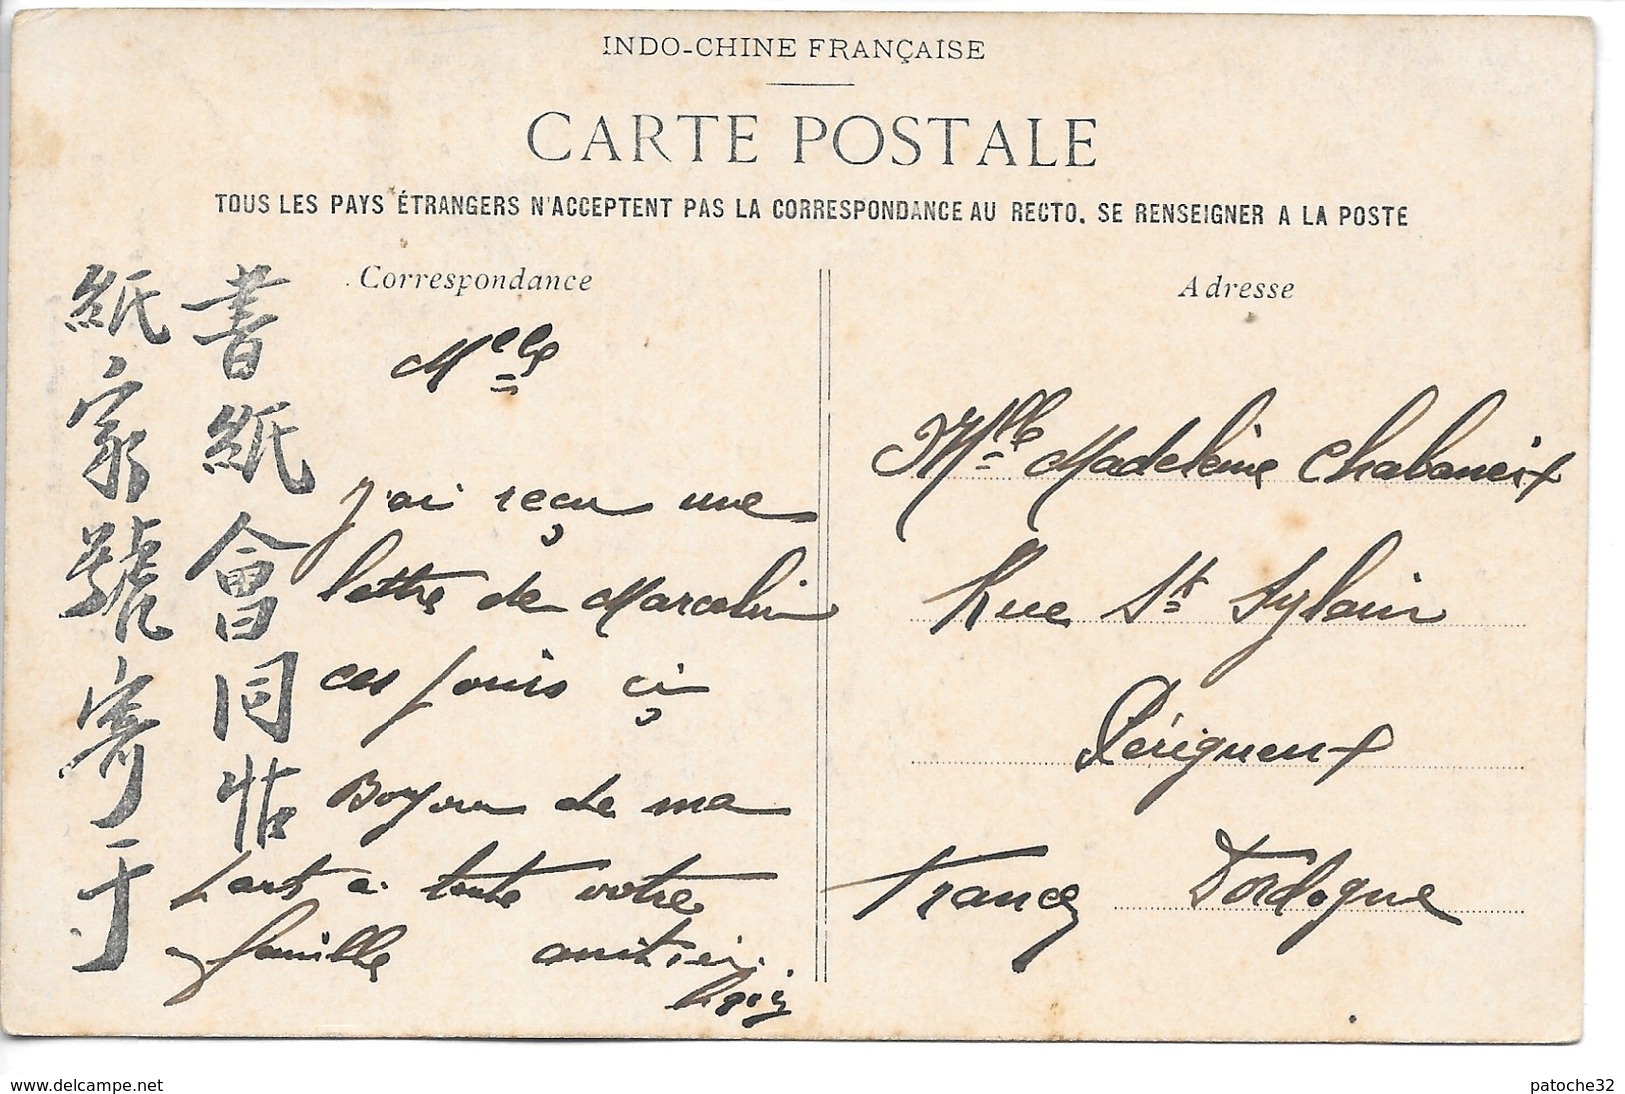 INDO-CHINE FRANÇAISE
CARTE POSTALE
TOUS LES PAYS ÉTRANGERS N'ACCEPTENT PAS LA CORRESPONDANCE AU RECTO. SE RENSEIGNER A LA POSTE
Correspondance
書紙會同帖
紙家號寄于
Mlle
J'ai reçu une
lettre de Marcelin
ces jours çi
Bonjour de ma
part a toute votre
famille amitiés
Adresse
Mlle Madeleine Chabaneix
Rue St Sylain
Périgueux
France Dordogne
www.delcampe.net
patoche32